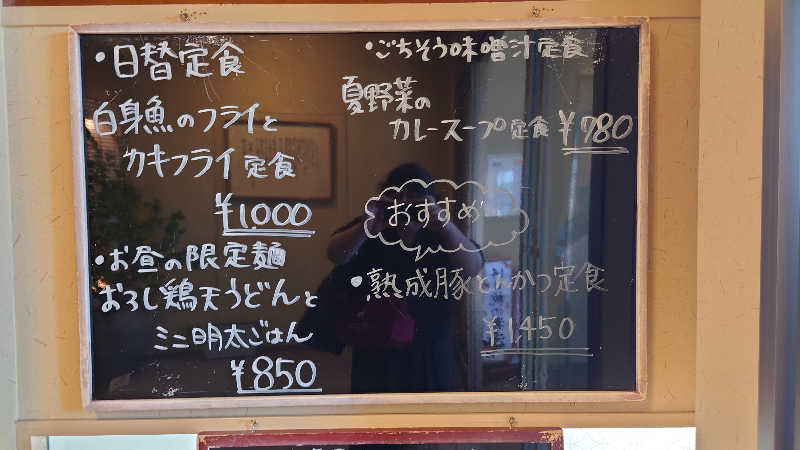 ・日替定食
白身魚のフライと
カキフライ定食
¥1,000
・お昼の限定麺
おろし鶏天うどんと
ミニ明太ごはん
¥850
・ごちそう味噌汁定食
夏野菜の
カレースープ定食 ¥780
おすすめ
・熟成豚とんかつ定食
¥1,450